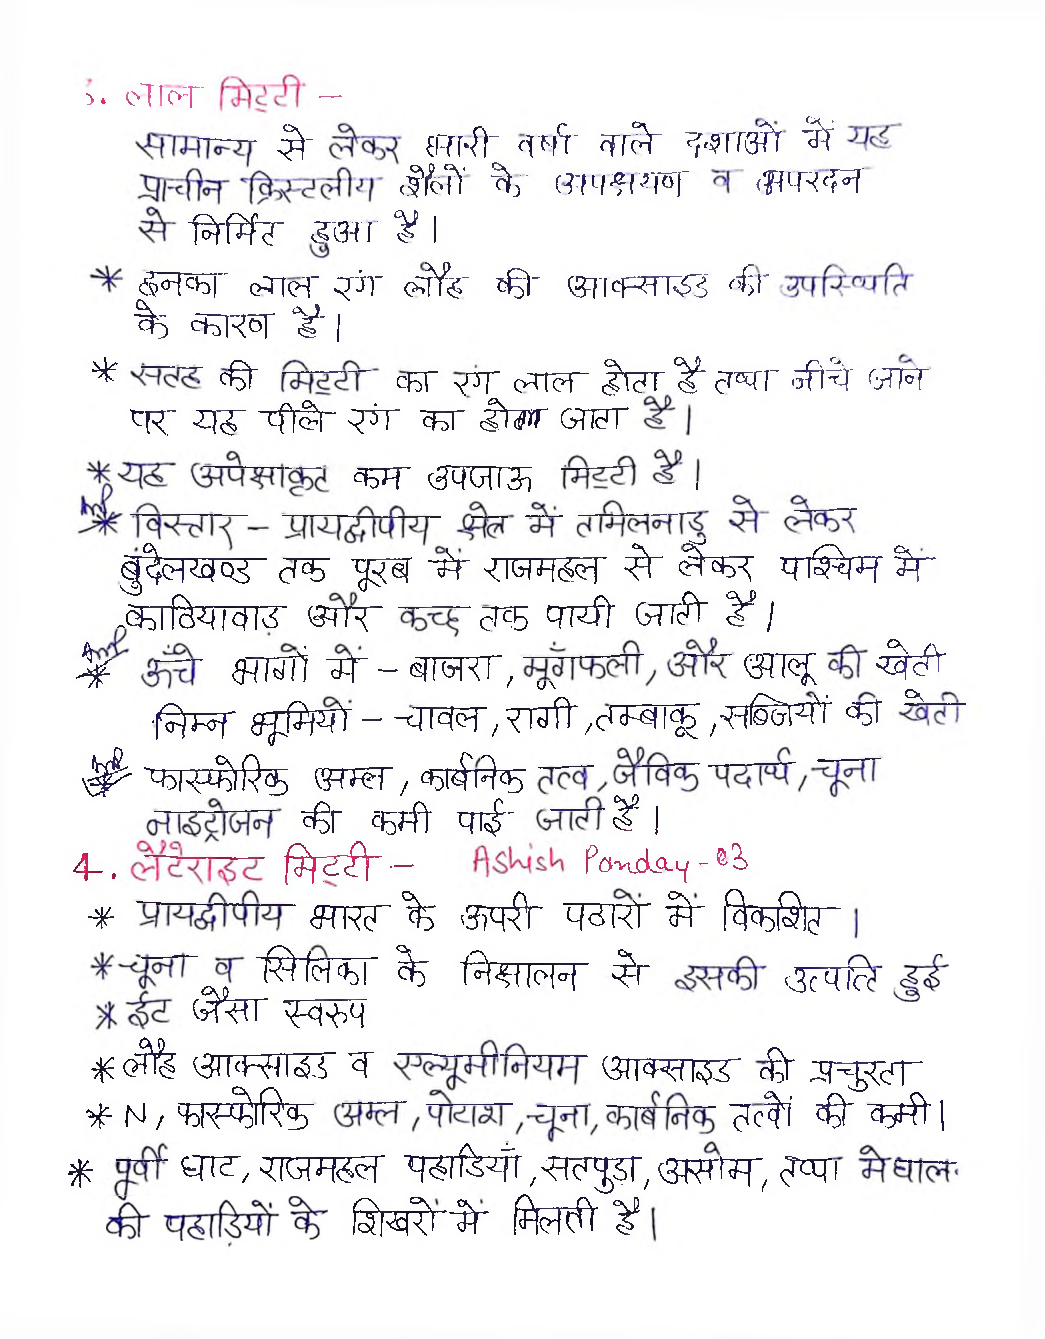 3. लाल मिट्टी -
सामान्य से लेकर भारी वर्षा वाले दशाओं में यह
प्राचीन क्रिस्टलीय शैलों के अपक्षयण व अपरदन
से निर्मित हुआ है।
* इनका लाल रंग लौह की आक्साइड की उपस्थिति
के कारण है।
* सतह की मिट्टी का रंग लाल होता है तथा नीचे जाने
पर यह पीले रंग का होता जाता है।
* यह अपेक्षाकृत कम उपजाऊ मिट्टी है।
Imp * विस्तार - प्रायद्वीपीय क्षेत्र में तमिलनाडु से लेकर
बुंदेलखण्ड तक पूरब में राजमहल से लेकर पाश्चिम में
काठियावाड़ और कच्छ तक पायी जाती है।
Imp * ऊँचे भागों में - बाजरा, मूँगफली, और आलू की खेती
निम्न भूमियों - चावल, रागी, तम्बाकू, सब्जियों की खेती
Imp * फास्फोरिक अम्ल, कार्बनिक तत्व, जैविक पदार्थ, चूना
नाइट्रोजन की कमी पाई जाती है।
4. लैटेराइट मिट्टी - Ashish Panday-03
* प्रायद्वीपीय भारत के ऊपरी पठारों में विकशित।
* चूना व सिलिका के निक्षालन से इसकी उत्पत्ति हुई
* ईट जैसा स्वरुप
* लौह आक्साइड व एल्यूमीनियम आक्साइड की प्रचुरता
* N, फास्फोरिक अम्ल, पोटाश, चूना, कार्बनिक तत्वों की कमी।
* पूर्वी घाट, राजमहल पहाडियाँ, सतपुड़ा, असोम, तथा मेघाल.
की पहाड़ियों के शिखरों में मिलती है।